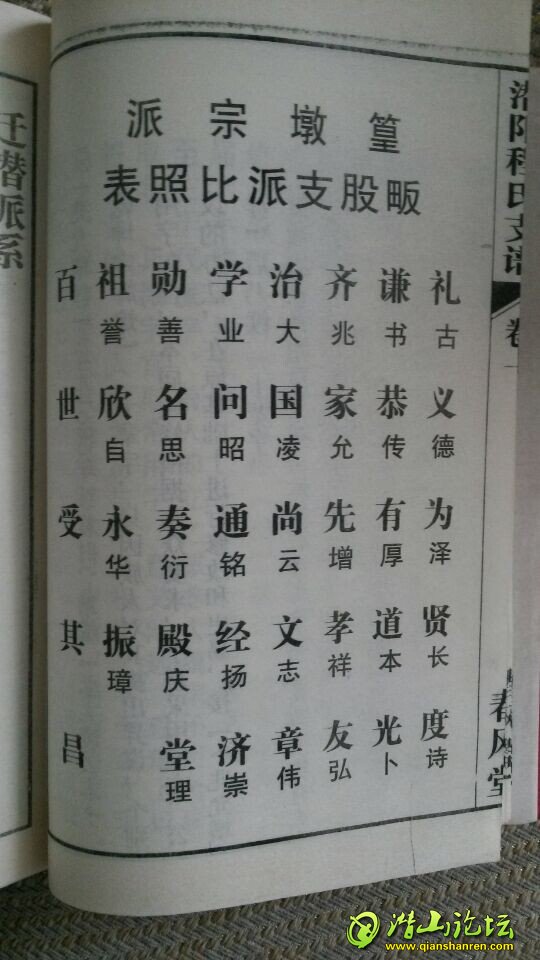 潜阳程氏支谱
卷
春风堂
篁墩宗派
畈股支派比照表
礼古义德为泽贤长度诗
谦书恭传有厚道本光卜
齐兆家允先增孝祥友弘
治大国凌尚云文志章伟
学业问昭通铭经扬济崇
勋善名思奏衍殿庆堂理
祖誉欣自永华振璋
百世受其昌
迁潜派系
潜山论坛
www.qianshanren.com